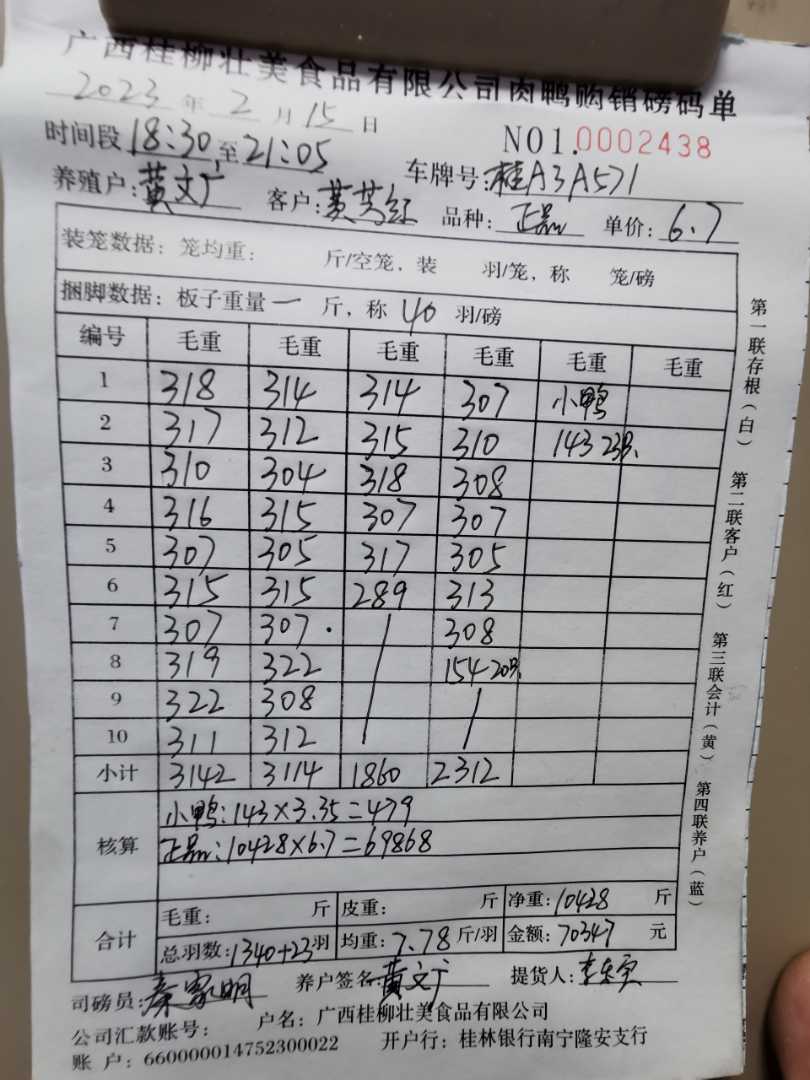 广西桂柳壮美食品有限公司肉鸭购销磅码单
2023年2月15日
NO1.0002438
时间段18:30至21:05
车牌号:桂A3A571
养殖户:黄文广 客户:黄芳红 品种:正品 单价:6.7
装笼数据: 笼均重: 斤/空笼, 装 羽/笼, 称 笼/磅
捆脚数据: 板子重量 一 斤, 称 40 羽/磅
编号 毛重 毛重 毛重 毛重 毛重 毛重
1 318 314 314 307 小鸭
2 317 312 315 310 143 23只
3 310 304 318 308
4 316 315 307 307
5 307 305 317 305
6 315 315 289 313
7 307 307. / 308
8 319 322 154-20只
9 322 308 / /
10 311 312
小计 3142 3114 1860 2312
核算
小鸭:143×3.35=479
正品:10428×6.7=69868
合计
毛重: 斤 皮重: 斤 净重:10428 斤
总羽数:1340+23羽 均重:7.78斤/羽 金额:70347 元
司磅员:秦家明 养户签名:黄文广 提货人:
公司汇款账号: 户名:广西桂柳壮美食品有限公司
账 户:660000014752300022 开户行:桂林银行南宁隆安支行
第一联存根(白)
第二联客户(红)
第三联会计(黄)
第四联养户(蓝)